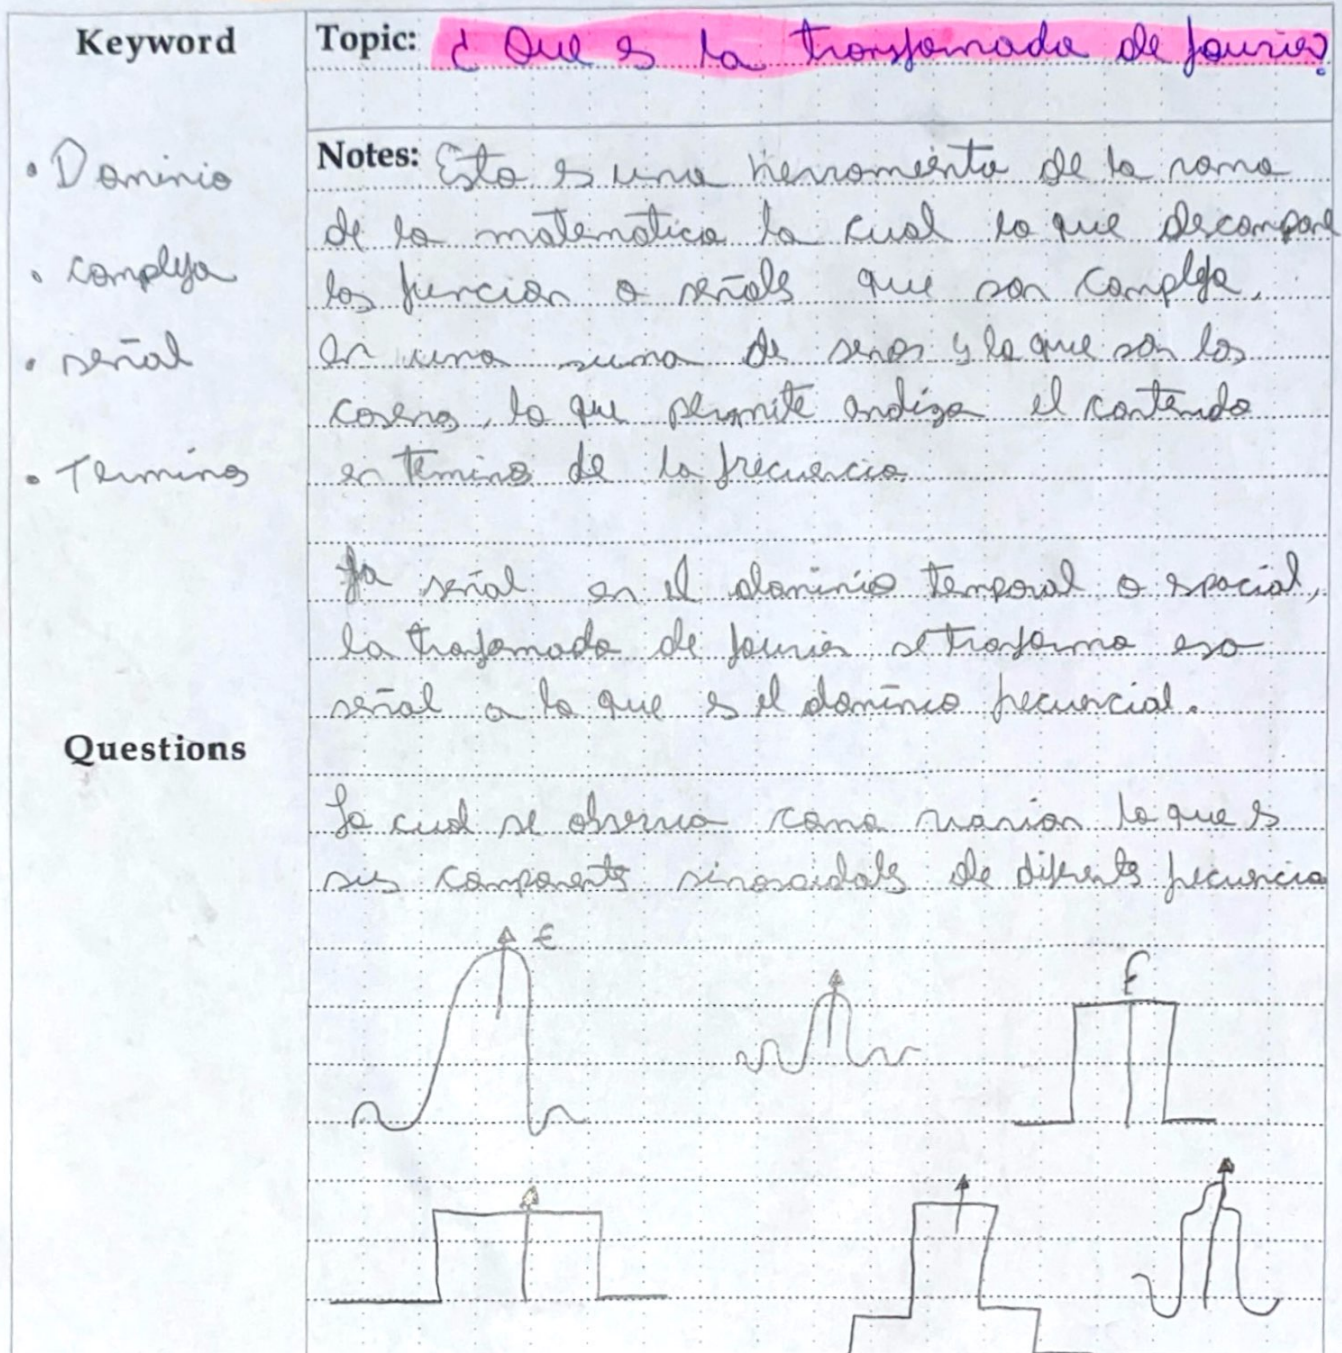 Keyword
Topic: ¿Que es la transformada de fourier?
Notes: Esta es una herramienta de la rama
• Dominio
de la matematica la cual lo que descompone
• compleja
las funcion o señales que son compleja,
• señal
en una suma de senos y lo que son los
coseno, lo que permite analiza el contenido
• Terminos
en termino de la frecuencia
La señal en el dominio temporal o espacial,
la trasformada de fourier se trasforma esa
señal a lo que es el dominio frecuencial.
Questions
La cual se observa como varian lo que es
sus componentes sinosoidales de diferentes frecuencia
f